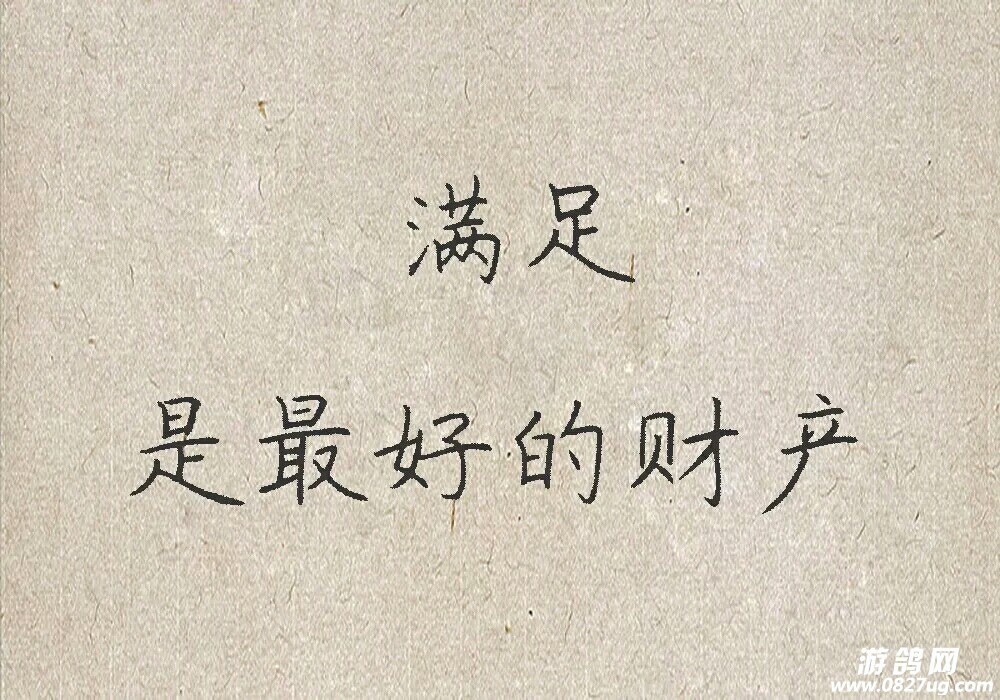 满足
是最好的财产
游鸽网
www.0827ug.com